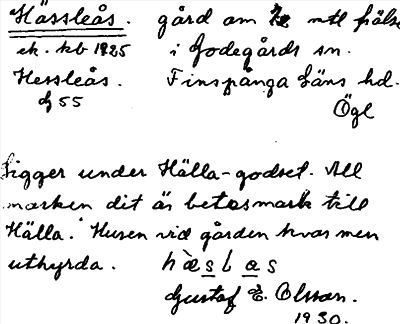 Hässleås. gård om mtl frälse
ek. kb 1925 i Godegårds sn.
Hessleås. Finspånga Läns hd.
G 55 Ögl
Ligger under Hälla-godset. All
marken dit är betesmark till
Hälla. Husen vid gården kvar men
uthyrda. hæ̀slas
Gustaf E. Olsson.
1930.